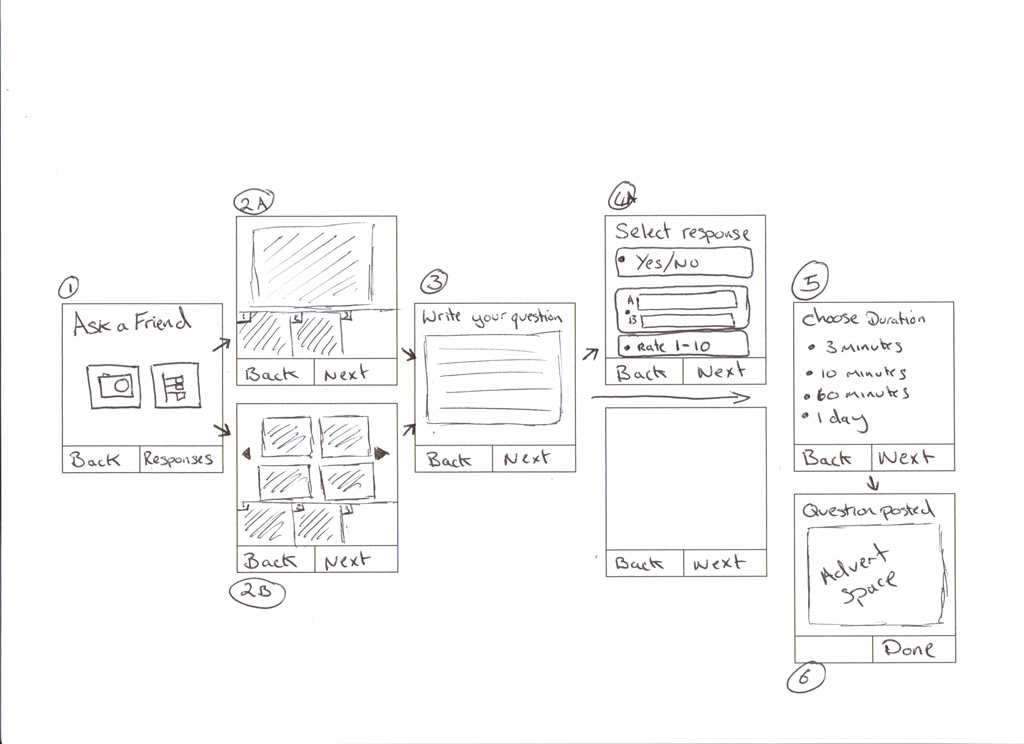 1
Ask a Friend
Back Responses
2A
1 2 3
Back Next
1 2 3
Back Next
2B
3
Write your question
Back Next
4A
Select response
• Yes/No
A
B
• Rate 1-10
Back Next
Back Next
5
Choose Duration
• 3 Minutes
• 10 minutes
• 60 minutes
• 1 day
Back Next
Question posted
Advert
Space
Done
6